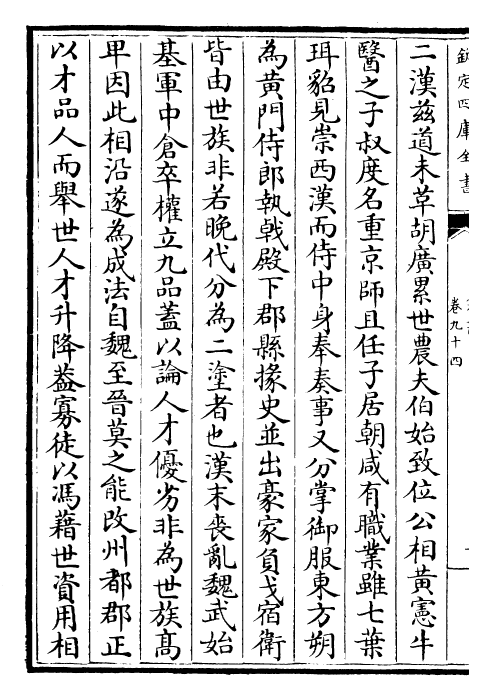 欽定四庫全書
卷九十四
二漢茲道未革胡廣累世農夫伯始致位公相黃憲牛
醫之子叔度名重京師且任子居朝咸有職業雖七葉
珥貂見崇西漢而侍中身奉奏事又分掌御服東方朔
為黃門侍郎執戟殿下郡縣掾史並出豪家負戈宿衛
皆由世族非若晚代分為二塗者也漢末喪亂魏武始
基軍中倉卒權立九品蓋以論人才優劣非為世族髙
卑因此相沿遂為成法自魏至晉莫之能改州都郡正
以才品人而舉世人才升降葢寡徒以馮藉世資用相